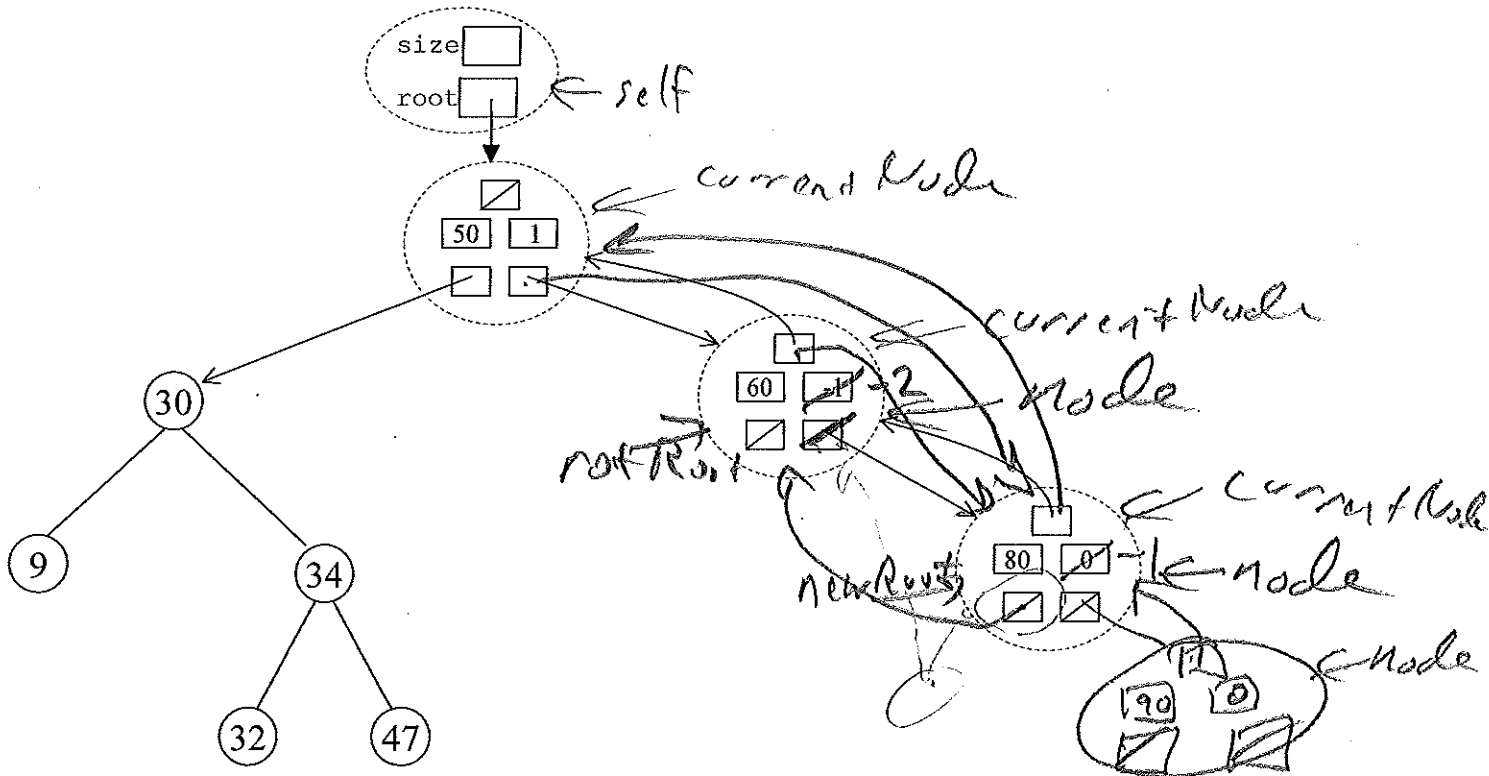 size
root
← self
currentNode
50 1
currentNode
60 -1 -2
node
rotRoot
30
currentNode
80 0 -1
node
newRoot
9
34
node
90 0
32
47